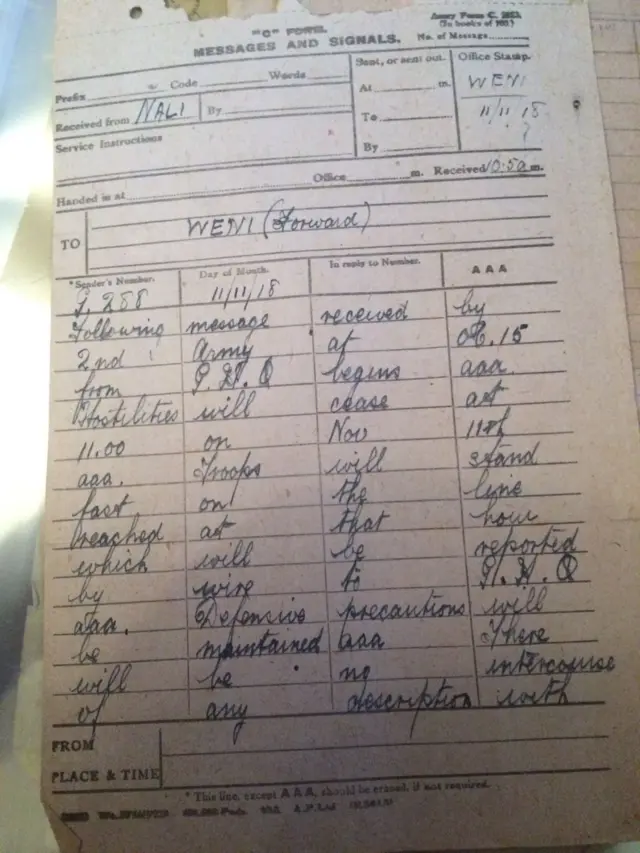 "C" FORM.
Army Form C. 2123.
(In books of 100.)
MESSAGES AND SIGNALS.
No. of Message
Prefix Code Words
Received from NALI By
Service Instructions
Sent, or sent out.
At m.
To
By
Office Stamp.
WENI
11/11/18
?
Handed in at Office m. Received 10.50 m.
TO WENI (Forward)
*Sender's Number. Day of Month. In reply to Number. AAA
G. 288 11/11/18
Following message received by
2nd Army at 08.15
from G.H.Q begins aaa
Hostilities will cease at
11.00 on Nov 11th
aaa. Troops will stand
fast on the line
reached at that hour
which will be reported
by wire to G.H.Q
aaa. Defensive precautions will
be maintained aaa There
will be no intercourse
of any description with
FROM
PLACE & TIME
* This line, except AAA, should be erased, if not required.